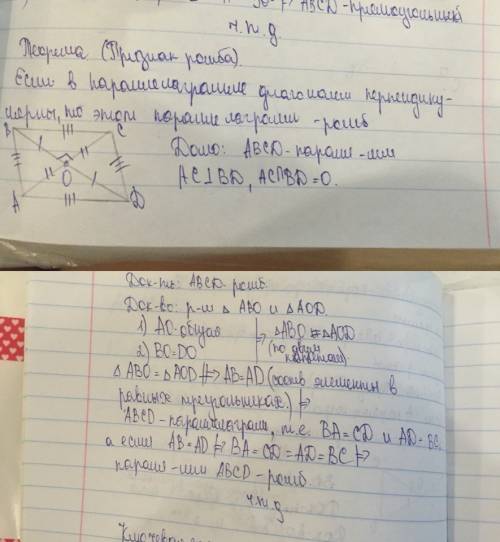 ABCD-прямоугольник
ч.т.д
Теорема (Признак ромба).
Если в параллелограмме диагонали перпендику-
лярны, то этот параллелограмм - ромб
B C
O
A D
Дано: ABCD-паралл-мм
AC⊥BD, AC∩BD=O.
Док-ть: ABCD-ромб.
Док-во: р-м △ ABO и △AOD.
1) AO-общая
2) BO=DO
⊨> △ABO=△AOD
(по двум катетам)
△ ABO = △AOD ⊨> AB=AD (соотв элементы в
равных треугольниках) ⊨>
ABCD-параллелограмм, т.е. BA=CD и AD=BC.
а если AB=AD ⊨> BA=CD=AD=BC ⊨>
паралл-мм ABCD-ромб.
ч.т.д